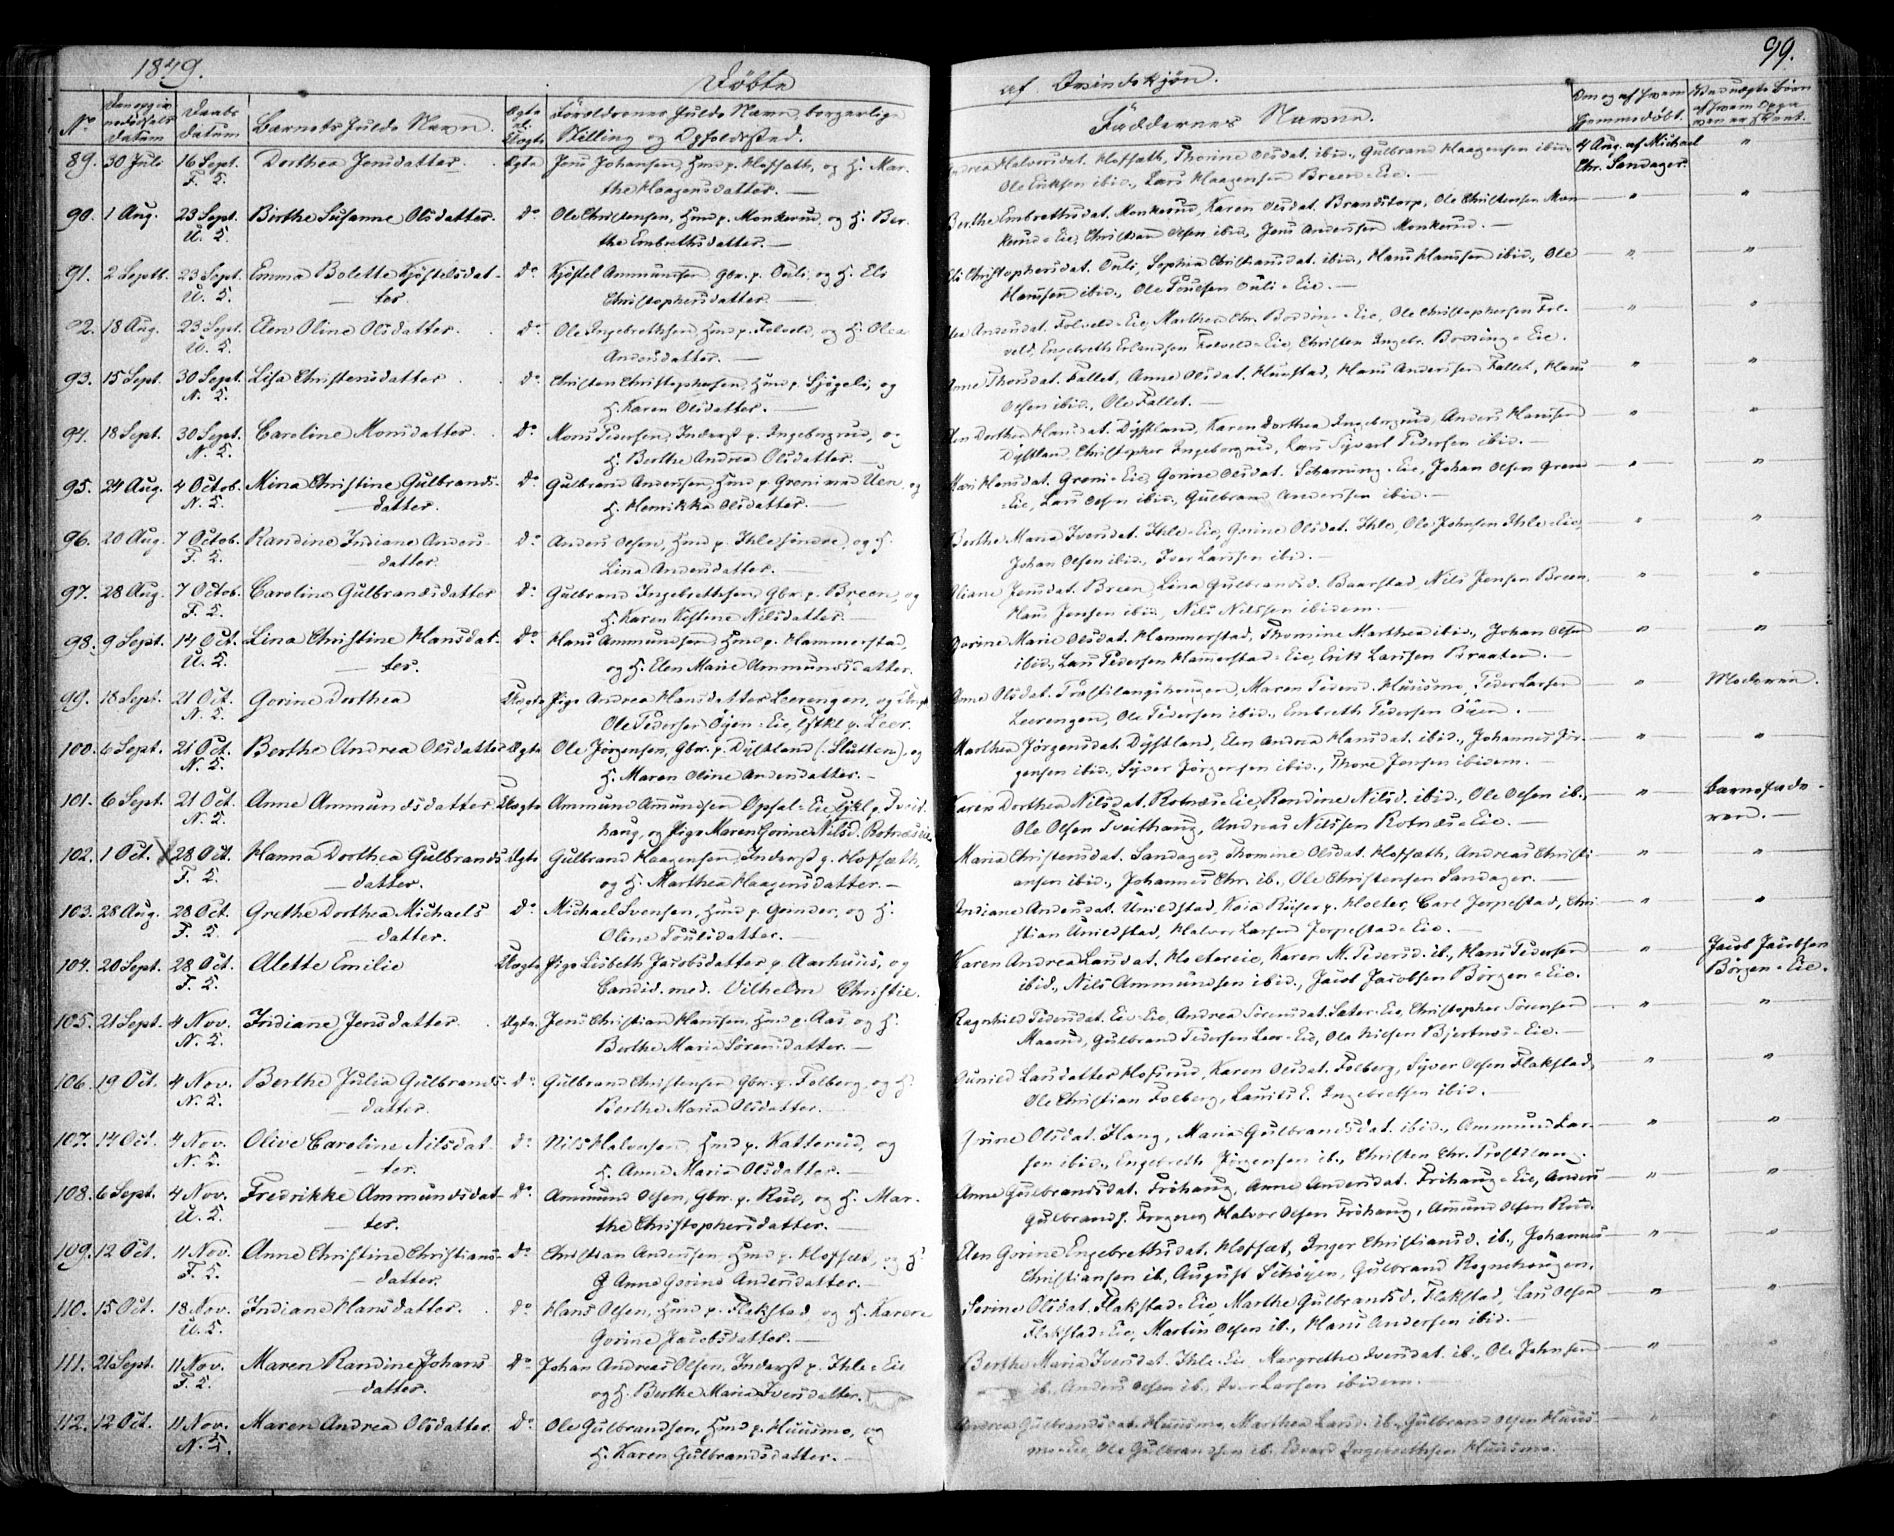 1849. Døbte af Qvindekjøn. 99.
No Barnets fulde Navn. Forældrenes fulde Navn, borgerlige Stilling og Opholdssted. Faddernes Navne.
89. 30 Juli 16 Sept. Dorthea Jensdatter. Ægte Jens Johansen, Hmd p. Hoffath, og H. Mar-
F. K. the Haagensdatter. —
Halvorsdat. Hoffath, Thorine Olsdat. ibid., Gulbrand Haagensen ibid, 4 Aug. af Michael "
Ole Eriksen ibid., Lars Haagensen Breen-Eie. — Chr. Sandager.
90. 1 Aug. 23 Sept. Birthe Susanne Olsdatter. Do Ole Christensen, Hmd p. Monkerud, og H. Ber-
U. K. the Embrethsdatter. —
Berthe Embrethsdat. Monkerud, Karen Olsdat. Brandstorp, Ole Christensen Mon- " "
kerud-Eie, Christian Olsen ibid, Jens Anderssen Monkerud. —
91. 2 Septt. 23 Sept. Emma Bolette Kjøstelsdat- Do Kjøstel Ammundsen Gbr. p. Ouli, og H. Eli
U. K. — ter. Christophersdatter. —
Eli Christophersdat. Ouli, Sophia Christiansdat. ibid., Hans Hanssen ibid., Ole " "
Hanssen ibid., Ole Poulsen Ouli-Eie. —
92. 18 Aug. 23 Sept. Elen Oline Olsdatter. Do Ole Ingebrethsen, Hmd p. Folveld, og H. Olea
U. K. Andersdatter. —
Andersdat. Folveld-Eie, Marthea Chr. Eie, Ole Christophersen Fol- " "
veld, Engebreth Erlandsen Folveld-Eie, Christen Ingebr. Eie.
93. 15 Sept. 30 Sept. Lisa Christensdatter Do Christen Christophersen, Hmd p. Sjøgeli, og
N. K. H. Karen Olsdatter. —
Anne Thorsdat. Fallet, Anne Olsdat. Haustad, Hans Anderssen Fallet, Hans " "
Olsen ibid., Ole Fallet. —
94. 18 Sept. 30 Sept. Caroline Monsdatter. Do Mons Pedersen, Inderst p. Ingeborgrud, og
N. K. H. Berthe Andrea Olsdatter. —
Dorthea Hansdat. Dÿstland, Karen Dorthea Ingeborgrud, Anders Hanssen " "
Dÿstland, Christopher Ingeborgrud, Lars Syvert Pedersen ibid. —
95. 24 Aug. 4 Octob. Mina Christine Gulbrands- Do Gulbrand Anderssen, Hmd p. Greni og
N. K. — datter. H. Henrikka Olsdatter. —
Mari Hansdat. Greni-Eie, Gorine Olsdat. Eie, Johan Olsen Greni " "
-Eie, Lars Olsen ibid., Gulbrand Anderssen ibid. —
96. 20 Aug. 7 Octob. Randine Indiane Anders- Do Anders Olsen, Hmd p. Ihle søndre, og H.
F. K. — datter. Lina Andersdatter. —
Berthe Maria Iversdat. Ihle-Eie, Gorine Olsdat. Ihle, Ole Johnsen Ihle-Eie, " "
Johan Olsen ibid., Iver Larssen ibid. —
97. 28 Aug. 7 Octob. Caroline Gulbrandsdatter Do Gulbrand Ingebrethsen, Gbr. p. Breen, og
F. K. H. Karen Kistine Nilsdatter. —
Jensdat. Breen, Lina Gulbrandsd. Baarstad, Nils Jensen Breen, " "
Hans Jensen ibid., Nils Nilssen ibidem. —
98. 9 Sept. 14 Oct. Lina Christine Hansdat- Do Hans Ammundsen, Hmd p. Hammerstad,
U. K. — ter. og H. Elen Marie Ammundsdatter.
Dorine Marie Olsdat. Hammerstad, Thomine Marthea ibid., Johan Olsen " "
ibid., Lars Pedersen Hamerstad-Eie, Erik Larssen Braaten. —
99. 18 Sept. 21 Oct. Gorine Dorthea Uægte Pige Andrea Hansdatter Leerengen, og
N. K. Ole Pedersen Øyen-Eie, p. Leer.
Anne Olsdat. Trøstilangshougen, Maren Pedersd. Huusmo, Peder Larsen " Moderen.
Leerengen, Ole Pedersen ibid., Embreth Pedersen Øÿen. —
100. 6 Sept. 21 Oct. Berthe Andrea Olsdatter Ægte Ole Jørgensen, Gbr. p. Dÿstland (: Slætten:), og
N. K. H. Maren Oline Andersdatter. —
Marthea Jørgensdat. Dÿstland, Elen Andrea Hansdat. ibid., Johannes Jør- " "
gensen ibid., Syver Jørgensen ibid., Thore Jensen ibidem. —
101. 6 Sept. 21 Oct. Anne Ammundsdatter. Uægte Ammund Ammundsen Opsal-Eie, p. Tveit-
N. K. haug, og Pige Maren Gorine Nilsd. Rotnæseie
Karen Dorthea Nilsdat. Rotnæs-Eie, Randine Nilsd. ibid., Ole Olsen ib., " Barnefade-
Ole Olsen Tveithaug, Andreas Nilssen Rotnæs-Eie. — ren. —
102. 1 Oct. X 28 Oct. Hanna Dorthea Gulbrands- Ægte Gulbrand Haagensen, Inderst p. Hoffath,
F. K. — datter. og H. Marthea Haagensdatter. —
Maria Christensdat. Sandager, Thomine Olsdat. Hoffath, Andreas Christi- " "
ansen ibid., Johannes Chr. ib., Ole Christensen Sandager. —
103. 28 Aug. 28 Oct. Grethe Dorthea Michaels- Do Michael Svensen, Hmd p. Grinder, og H.
F. K. — datter. Oline Poulsdatter. —
Indiane Andersdat. Unildstad, Kaia Riiser p. Holter, Carl Jerpestad, Chri- " "
stian Unildstad, Halvor Larsen Jerpestad-Eie. —
104. 20 Sept. 28 Oct. Alette Emilie Uægte Pige Lisbeth Jacobsdatter p. Aarhuus, og
F. K. Candid. med. Vilhelm Christie.
Karen Andrea Larsdat. Holtereie, Karen M. Pedersd. ib., Hans Pedersen " Jacob Jacobsen
ibid., Nils Ammundsen ibid., Jacob Jacobsen Børgen-Eie. Børgen-Eie.
105. 21 Sept. 4 Nov. Indiane Jensdatter. Ægte Jens Christian Hanssen, Hmd p. Aas, og H.
N. K. Berthe Maria Sørensdatter. —
Ragnhild Pedersdat. Ei-Eie, Andrea Sørensdat. Sæter-Eie, Christopher Sørensen " "
Maarud, Gulbrand Pedersen Leer-Eie, Ole Nielsen Bjertnæs-Eie. —
106. 19 Oct. 4 Nov. Berthe Julia Gulbrands- Do Gulbrand Christensen, Gbr. p. Folberg, og H.
N. K. — datter. Berthe Maria Olsdatter. —
Gunild Larsdatter Hofsrud, Karen Olsdat. Folberg, Syver Olsen Flakstad, " "
Ole Christian Folberg, Laurits E. Ingebretsen ibid. —
107. 14 Oct. 4 Nov. Olive Caroline Nilsdat- Do Nils Halvorsen, Hmd p. Katterud, og
N. K. — ter. H. Anne Maria Olsdatter. —
Gorine Olsdat. Haug, Maria Gulbrandsdat. ibid., Ammund Lar- " "
sen ibid., Engebreth Jørgensen ib., Christen Chr.
108. 6 Sept. 4 Nov. Fredrikke Ammundsdat- Do Ammund Olsen, Gbr. p. Rud, og H. Mar-
U. K. — ter. the Christophersdatter. —
Anne Gulbrandsdat. Frihaug, Anne Andersdat. Frihaug-Eie, Anders " "
Gulbrands. Halvor Olsen Frihaug, Amund Olsen Rud.
109. 12 Oct. 11 Nov. Anne Christine Christians- Do Christian Andersen, Hmd p. Hoffæt, og H.
F. K. — datter. Anne Gorine Andersdatter. —
Elen Gorine Engebrethsdat. Hoffæt, Inger Christiansd. ib., Johannes " "
Christiansen ib., August Schøyen, Gulbrand Rognehougen.
110. 15 Oct. 18 Nov. Indiane Hansdatter. Do Hans Olsen, Hmd p. Flakstad, og H. Karen
U. K. Gorine Jacobsdatter. —
Serine Olsdat. Flakstad-Eie, Marthe Gulbrandsd. Flakstad, Lars Olsen " "
Flakstad-Eie, Martin Olsen ib., Hans Andersen ibid. —
111. 21 Sept. 11 Nov. Maren Randine Johans- Do Johan Andreas Olsen, Inderst p. Ihle-Eie
F. K. — datter. og H. Berthe Maria Iversdatter.
Berthe Maria Iversdat. Ihle-Eie, Margrethe Iversdat. ib., Ole Johnsen " "
ib., Anders Olsen ib., Iver Larsen ibidem. —
112. 12 Oct. 11 Nov. Maren Andrea Olsdatter. Do Ole Gulbrandsen, Hmd p. Huusmo, og
N. K. H. Karen Gulbrandsdatter. —
Andrea Gulbrandsdat. Huusmo, Marthea Larsd. ib., Gulbrand Olsen Huus- " "
mo-Eie, Ole Gulbrandsen ib., Edvard Ingebrethsen Huusmo.